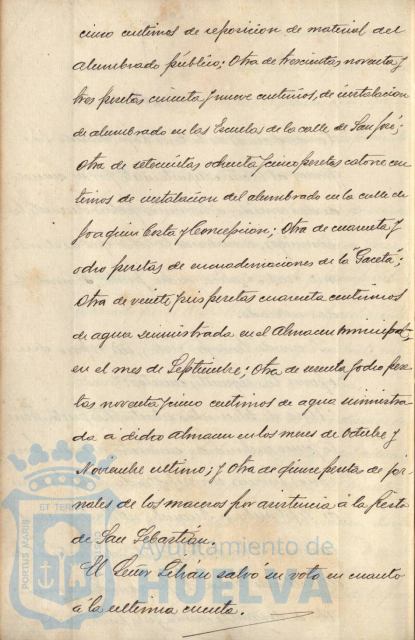 cinco centimos de reposicion de material del
alumbrado público; Otra de trescientas noventa y
tres pesetas cincuenta y nueve centimos, de instalacion
de alumbrado en las Escuelas de la calle de San José;
Otra de setecientas ochenta y cinco pesetas catorce cen
timos de instalacion del alumbrado en la calle de
Joaquin Costa y Concepcion; Otra de cuarenta y
ocho pesetas de encuadernaciones de la "Gaceta";
Otra de veinte y seis pesetas cuarenta centimos
de agua suministrada en el Almacen municipal,
en el mes de Septiembre; Otra de y ocho pese
tas noventa y cinco centimos de agua suministra
da á dicho almacen en los meses de Octubre y
Noviembre ultimo; y Otra de quince pesetas de jor-
nales de los maceros por asistencia á la fiesta
de San Sebastián.
El Señor salvó su voto en cuanto
á la ultima cuenta.
PORTUS MARIS
ET TERR
Ayuntamiento de
HUELVA